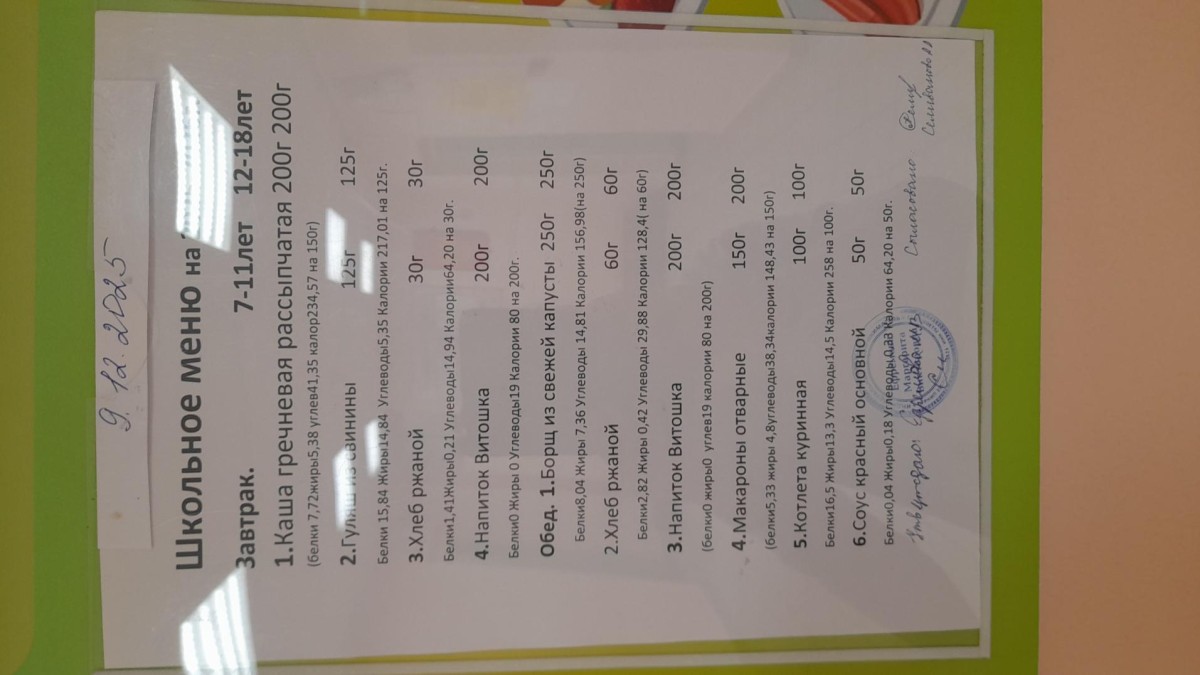 9. 12. 2025
Школьное меню на
Завтрак. 7-11лет 12-18лет
1.Каша гречневая рассыпчатая 200г 200г
(белки 7,72жиры5,38 углев41,35 калор234,57 на 150г)
2.Гуляш из свинины 125г 125г
Белки 15,84 Жиры14,84 Углеводы5,35 Калории 217,01 на 125г.
3.Хлеб ржаной 30г 30г
Белки1,41Жиры0,21 Углеводы14,94 Калории64,20 на 30г.
4.Напиток Витошка 200г 200г
Белки0 Жиры 0 Углеводы19 Калории 80 на 200г.
Обед. 1.Борщ из свежей капусты 250г 250г
Белки8,04 Жиры 7,36 Углеводы 14,81 Калории 156,98(на 250г)
2.Хлеб ржаной 60г 60г
Белки2,82 Жиры 0,42 Углеводы 29,88 Калории 128,4( на 60г)
3.Напиток Витошка 200г 200г
(белки0 жиры0 углев19 калории 80 на 200г)
4.Макароны отварные 150г 200г
(белки5,33 жиры 4,8углеводы38,34калории 148,43 на 150г)
5.Котлета куринная 100г 100г
Белки16,5 Жиры13,3 Углеводы14,5 Калории 258 на 100г.
6.Соус красный основной 50г 50г
Белки0,04 Жиры0,18 Углеводы0,33 Калории 64,20 на 50г.
Утверждаю: Согласовано